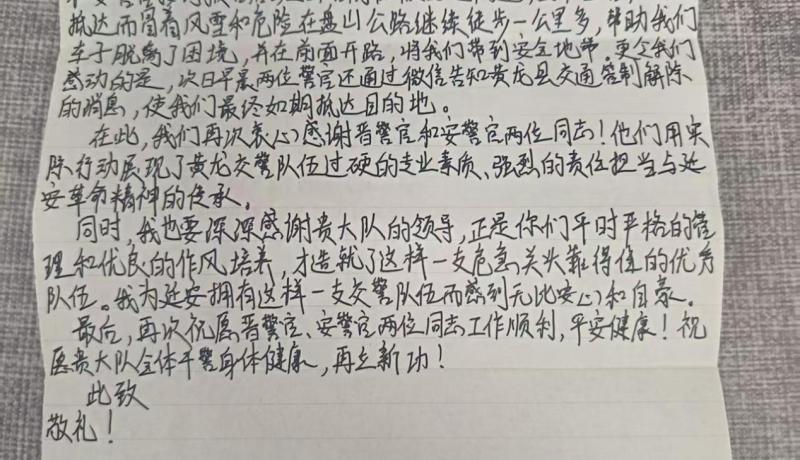 抵达而冒着风雪和危险在盘山公路继续徒步一公里多,帮助我们
车子脱离了困境,并在前面开路,将我们带到安全地带。更令我们
感动的是,次日早晨两位警官还通过微信告知黄龙县交通管制解除
的消息,使我们最终如期抵达目的地。
在此,我们再次衷心感谢晋警官和安警官两位同志!他们用实
际行动展现了黄龙交警队伍过硬的专业素质、强烈的责任担当与延
安革命精神的传承。
同时,我也要深深感谢贵大队的领导,正是你们平时严格的管
理和优良的作风培养,才造就了这样一支危急关头靠得住的优秀
队伍。我为延安拥有这样一支交警队伍而感到无比安心和自豪。
最后,再次祝愿晋警官、安警官两位同志工作顺利,平安健康!祝
愿贵大队全体干警身体健康,再立新功!
此致
敬礼!